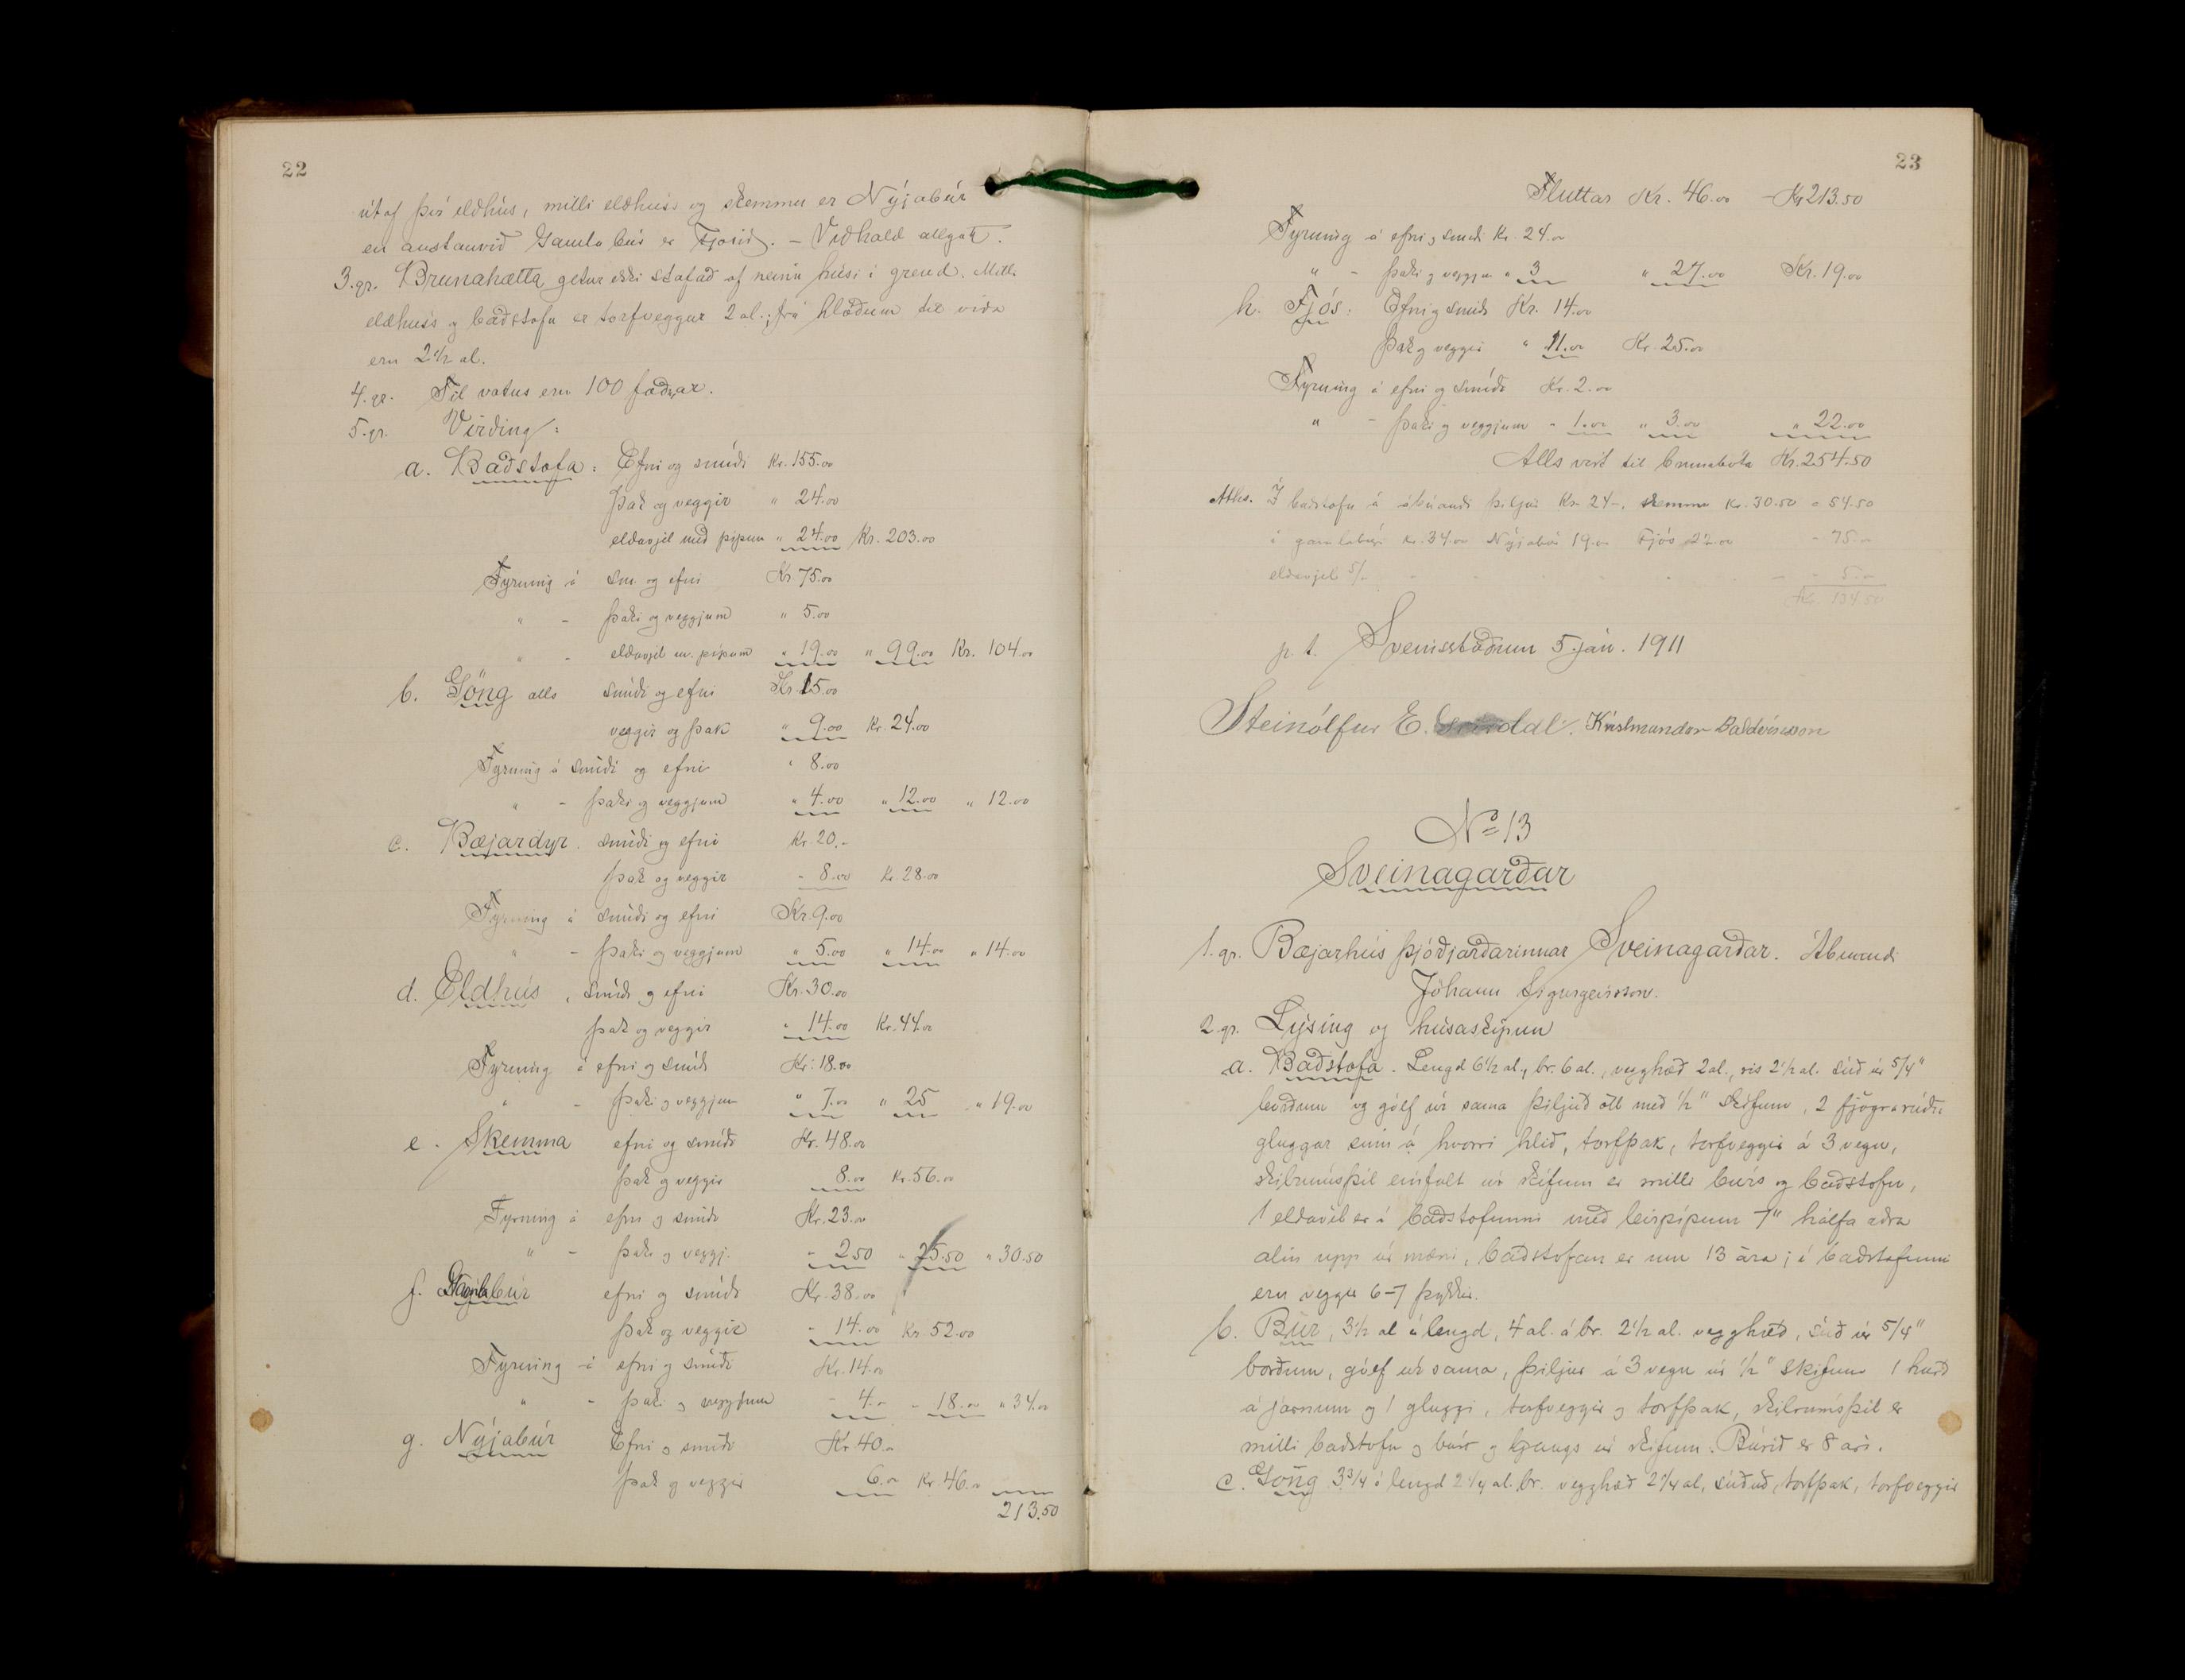 22
útaf því eldhús, milli eldhúss og skemmu er Nýjabúr
en austanvið Gamlabúr er Fjósið. – Viðhald allgott.
3. gr. Brunahætta getur ekki stafað af neinu húsi í grend. Milli
eldhúss og baðstofu er torfveggur 2 al.; frá hlóðum til viða
eru 2 1/2 al.
4. gr. Til vatns eru 100 faðmar.
5. gr. Virðing:
a. Baðstofa: Efni og smíði Kr. 155.00
Þak og veggir " 24.00
eldavjel með pípum " 24.00 Kr. 203.00
Fyrning á sm. og efni Kr 75.00
" – þaki og veggjum " 5.00
" – eldavjel m. pípum " 19.00 " 99.00 Kr. 104.00
b. Göng alls smíði og efni Kr. 15.00
veggir og þak " 9.00 Kr. 24.00
Fyrning á smíði og efni " 8.00
" – þaki og veggjum " 4.00 " 12.00 " 12.00
c. Bæjardyr. smíði og efni Kr. 20.-
Þak og veggir - 8.00 Kr. 28.00
Fyrning á smíði og efni Kr. 9.00
" – þaki og veggjum " 5.00 " 14.00 " 14.00
d. Eldhús, smíði og efni Kr. 30.00
Þak og veggir " 14.00 Kr. 44.00
Fyrning á efni og smíði Kr. 18.00
" – þaki og veggjum " 7.00 " 25 " 19.00
e. Skemma efni og smíði Kr. 48.00
Þak og veggir 8.00 Kr. 56.00
Fyrning á efni og smíði Kr. 23.00
" – þaki og veggj. - 2.50 " 25.50 " 30.50
f. efni og smíði Kr. 38.00
Þak og veggir - 14.00 Kr 52.00
Fyrning á efni og smíði Kr. 14.00
" – þaki og veggjum - 4.00 - 18.00 " 34.00
g. Nýjabúr Efni og smíði Kr. 40.00
Þak og veggir 6.00 Kr. 46.00
213.50
23
Fluttar Kr. 46.00 – Kr 213.50
Fyrning á efni og smíði Kr. 24.00
" – þaki og veggjum " 3 " 27.00 Kr. 19.00
h. Fjós: Efni og smíði Kr. 14.00
Þak og veggir " 11.00 Kr. 25.00
Fyrning á efni og smíði Kr. 2.00
" – þaki og veggjum - 1.00 " 3.00 " 22.00
Alls virt til brunabóta Kr. 254.50
Aths. Í baðstofu á ábúandi þiljur Kr. 24-, skemmu Kr. 30.50 = 54.50
í gamlabúri Kr. 34.00 Nýjabúr 19.00 Fjós 22.00 - 75.00
eldavjel 5/00 - 5.00
Kr. 134.50
p. t. Sveinsstöðum 5. jan. 1911
Steinólfur E. Kristmundur Baldvinsson
No 13
Sveinagarðar
1. gr. Bæjarhús þjóðjarðarinnar Sveinagarðar. Ábúandi
Jóhann Sigurgeirsson.
2. gr. Lýsing og húsaskipun
a. Baðstofa. Lengd 6 1/2 al., br. 6 al., vegghæð 2 al., ris 2 1/2 al. súð úr 5/4"
borðum og gólf úr sama þiljuð öll með 1/2" skífum, 2 fjögra rúðu
gluggar sinn á hvorri hlið, torfþak, torfveggir á 3 vegu,
skilrúmsþil einfalt úr skífum er milli búrs og baðstofu,
1 eldavél er í baðstofunni með leirpípum 7" hálfa aðra
alin upp úr mæni, baðstofan er um 13 ára; í baðstofunni
eru veggir 6–7 þykkir.
b. Búr, 3 1/2 al á lengd, 4 al. á br. 2 1/2 al. vegghæð, súð úr 5/4"
borðum, gólf úr sama, þiljur á 3 vegu úr 1/2" skífum 1 hurð
á járnum og 1 gluggi, torfveggir og torfþak, skilrúmsþil er
milli baðstofu og búrs og gangs úr skífum. Búrið er 8 ára.
c. Göng 3 3/4 á lengd 2 1/4 al. br. vegghæð 2 1/4 al, súðuð, torfþak, torfveggir